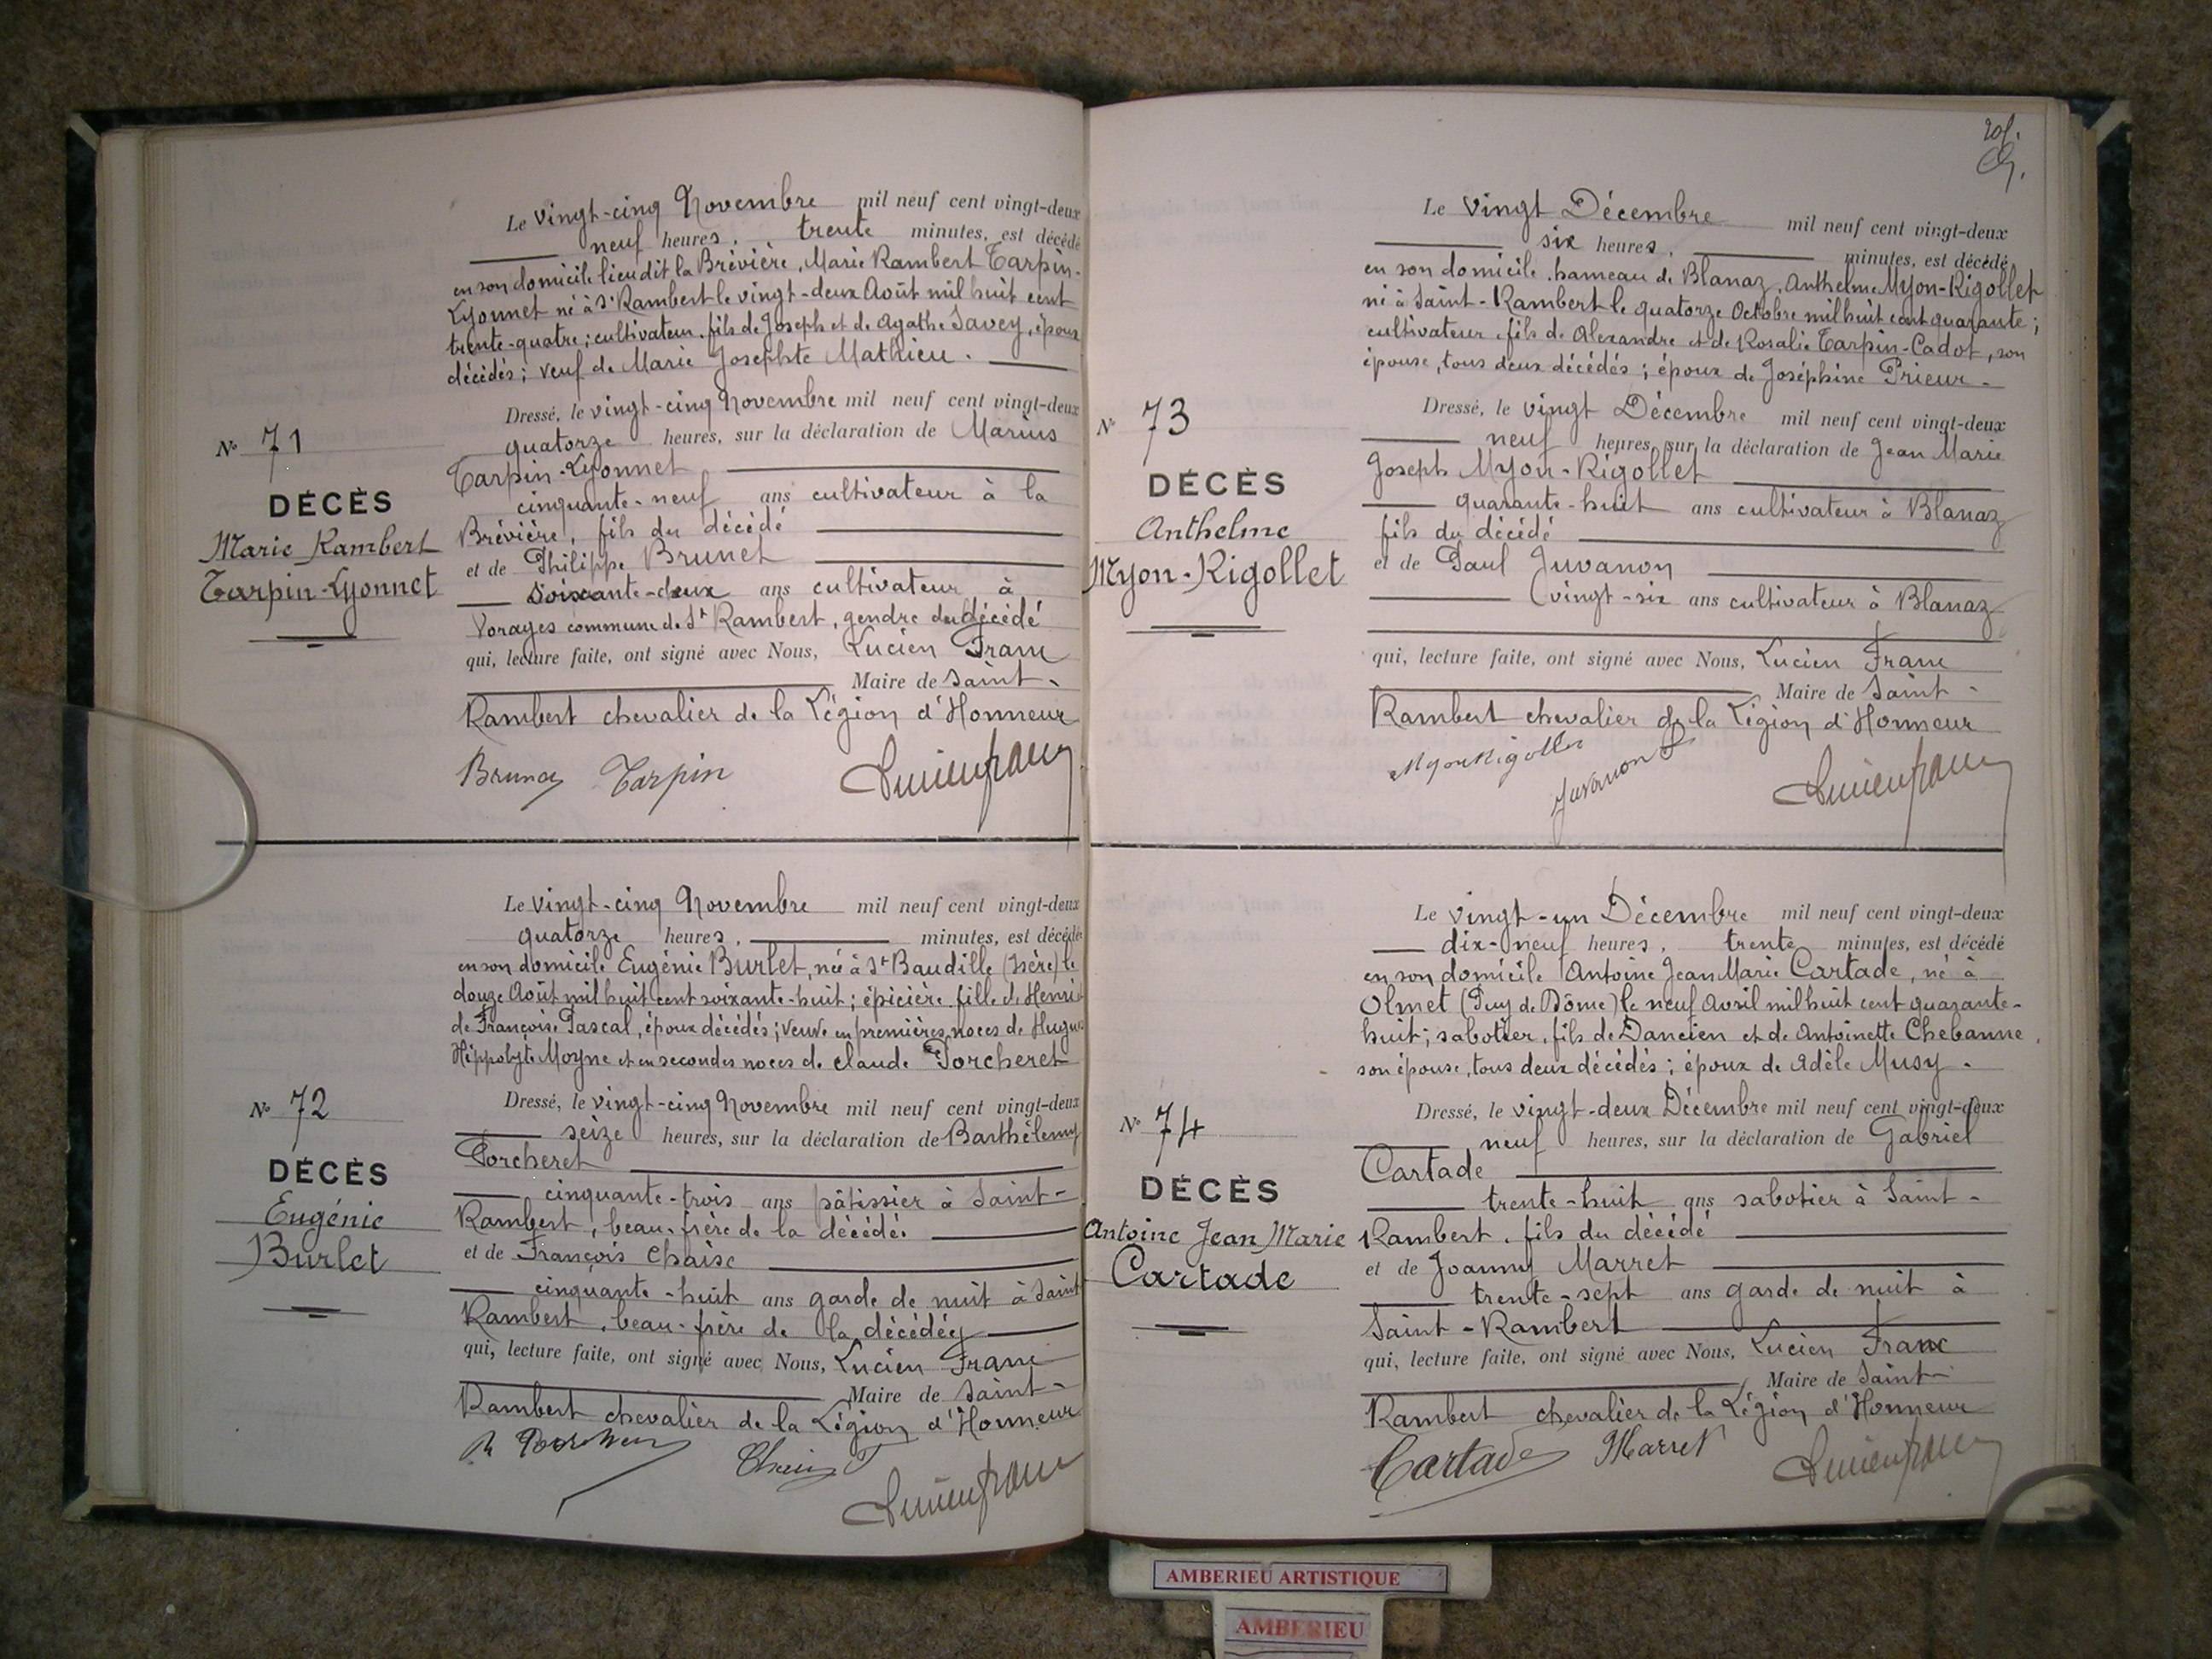 Le vingt-cinq Novembre mil neuf cent vingt-deux
neuf heures, trente minutes, est décédé
en son domicile lieu dit la Brévière, Marie Rambert Tarpin-
Lyonnet né à St Rambert le vingt-deux Août mil huit cent
trente-quatre; cultivateur, fils de Joseph et de Agathe Savey, époux
décédés; veuf de Marie Josephte Mathieu.
Dressé, le vingt-cinq Novembre mil neuf cent vingt-deux
quatorze heures, sur la déclaration de Marius
Tarpin-Lyonnet
cinquante-neuf ans cultivateur à la
Brévière, fils du décédé
et de Philippe Brunet
soixante-deux ans cultivateur à
Vorages commune de St Rambert, gendre du décédé
qui, lecture faite, ont signé avec Nous, Lucien Franc
Maire de Saint-
Rambert chevalier de la Légion d'Honneur
Brunet Tarpin Lucien franc
No 71
DÉCÈS
Marie Rambert
Tarpin-Lyonnet
Le vingt-cinq Novembre mil neuf cent vingt-deux
quatorze heures, minutes, est décédée
en son domicile Eugénie Burlet, née à St Baudille (Isère) le
douze Août mil huit cent soixante-huit; épicière, fille de Henri
de Françoise Pascal, époux décédés; veuve en premières noces de Hugues
Hippolyte Moyne et en secondes noces de Claude Porcheret
Dressé, le vingt-cinq Novembre mil neuf cent vingt-deux
seize heures, sur la déclaration de Barthélemy
Porcheret
cinquante-trois ans pâtissier à Saint-
Rambert, beau-frère de la décédée
et de François Chaise
cinquante-huit ans garde de nuit à Saint
Rambert, beau-frère de la décédée
qui, lecture faite, ont signé avec Nous, Lucien Franc
Maire de Saint-
Rambert chevalier de la Légion d'Honneur
Lucien franc
No 72
DÉCÈS
Eugénie
Burlet
Le vingt Décembre mil neuf cent vingt-deux
six heures, minutes, est décédé
en son domicile hameau de Blanaz, Anthelme Myon-Rigollet
né à Saint-Rambert le quatorze Octobre mil huit cent quarante;
cultivateur, fils de Alexandre et de Rosalie Tarpin-Cadot, son
épouse, tous deux décédés; époux de Joséphine Prieur-
Dressé, le vingt Décembre mil neuf cent vingt-deux
neuf heures, sur la déclaration de Jean Marie
Joseph Myon-Rigollet
quarante-huit ans cultivateur à Blanaz
fils du décédé
et de Paul Juvanon
vingt-six ans cultivateur à Blanaz
qui, lecture faite, ont signé avec Nous, Lucien Franc
Maire de Saint-
Rambert chevalier de la Légion d'Honneur
Myon Rigollet Juvanon Lucien franc
No 73
DÉCÈS
Anthelme
Myon-Rigollet
Le vingt-un Décembre mil neuf cent vingt-deux
dix-neuf heures, trente minutes, est décédé
en son domicile Antoine Jean Marie Cartade, né à
Olmet (Puy de Dôme) le neuf Avril mil huit cent quarante-
huit; sabotier, fils de Dancien et de Antoinette Chebanne,
son épouse, tous deux décédés; époux de Adèle Musy.
Dressé, le vingt-deux Décembre mil neuf cent vingt-deux
neuf heures, sur la déclaration de Gabriel
Cartade
trente-huit ans sabotier à Saint-
Rambert, fils du décédé
et de Joanny Marret
trente-sept ans garde de nuit à
Saint-Rambert
qui, lecture faite, ont signé avec Nous, Lucien Franc
Maire de Saint-
Rambert chevalier de la Légion d'Honneur
Cartade Marret Lucien franc
No 74
DÉCÈS
Antoine Jean Marie
Cartade
AMBERIEU ARTISTIQUE
AMBERIEU